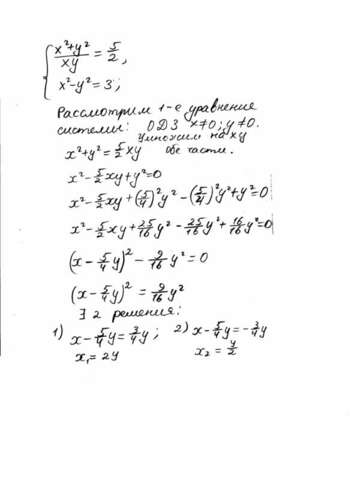 { (x²+y²)/(xy) = 5/2,
x²-y²=3;
Рассмотрим 1-е уравнение
системы: ОДЗ x≠0; y≠0.
Умножим на xy
x²+y²=5/2xy обе части.
x²-5/2xy+y²=0
x²-5/2xy+(5/4)²y²-(5/4)²y²+y²=0
x²-5/2xy+25/16y²-25/16y²+16/16y²=0
(x-5/4y)²-9/16y²=0
(x-5/4y)²=9/16y²
∃ 2 решения:
1) x-5/4y=3/4y; 2) x-5/4y=-3/4y
x₁=2y x₂=y/2